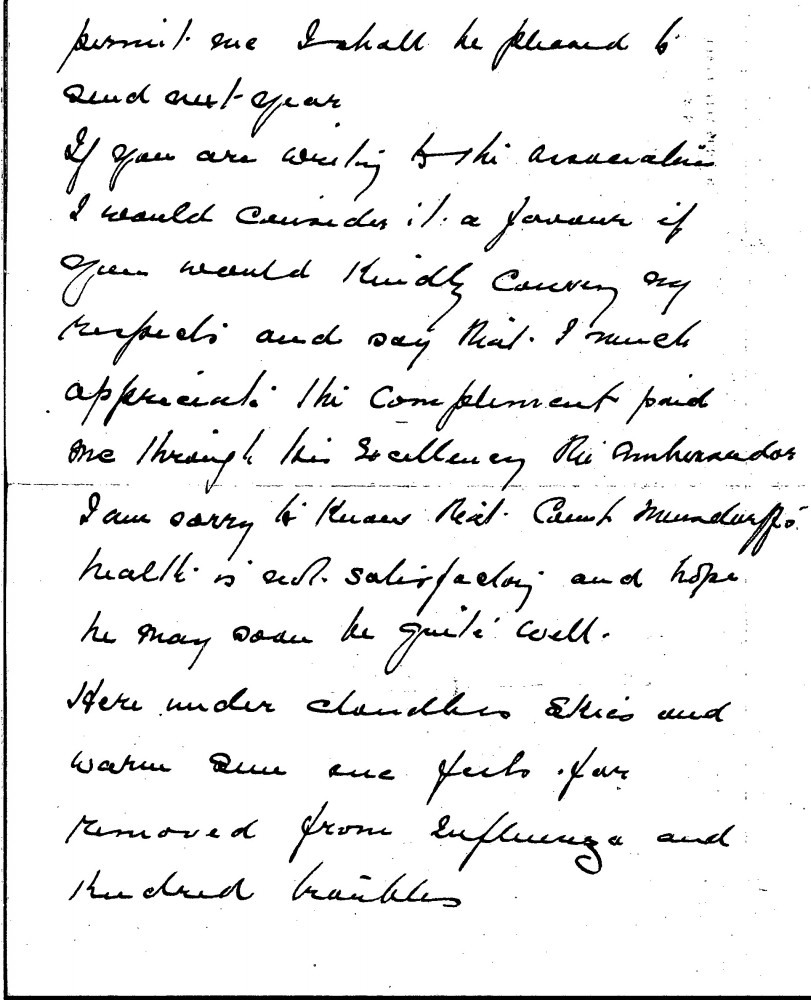 permit me I shall be pleased to
send next year
If you are writing to the association
I would consider it a favour if
you would Kindly convey my
respects and say that I much
appreciate the compliment paid
me through his Excellency the Ambassador
I am sorry to Know that Count
health is not satisfactory and hope
he may soon be quite well.
Here under cloudless skies and
warm sun one feels far
removed from Influenza and
Kindred troubles